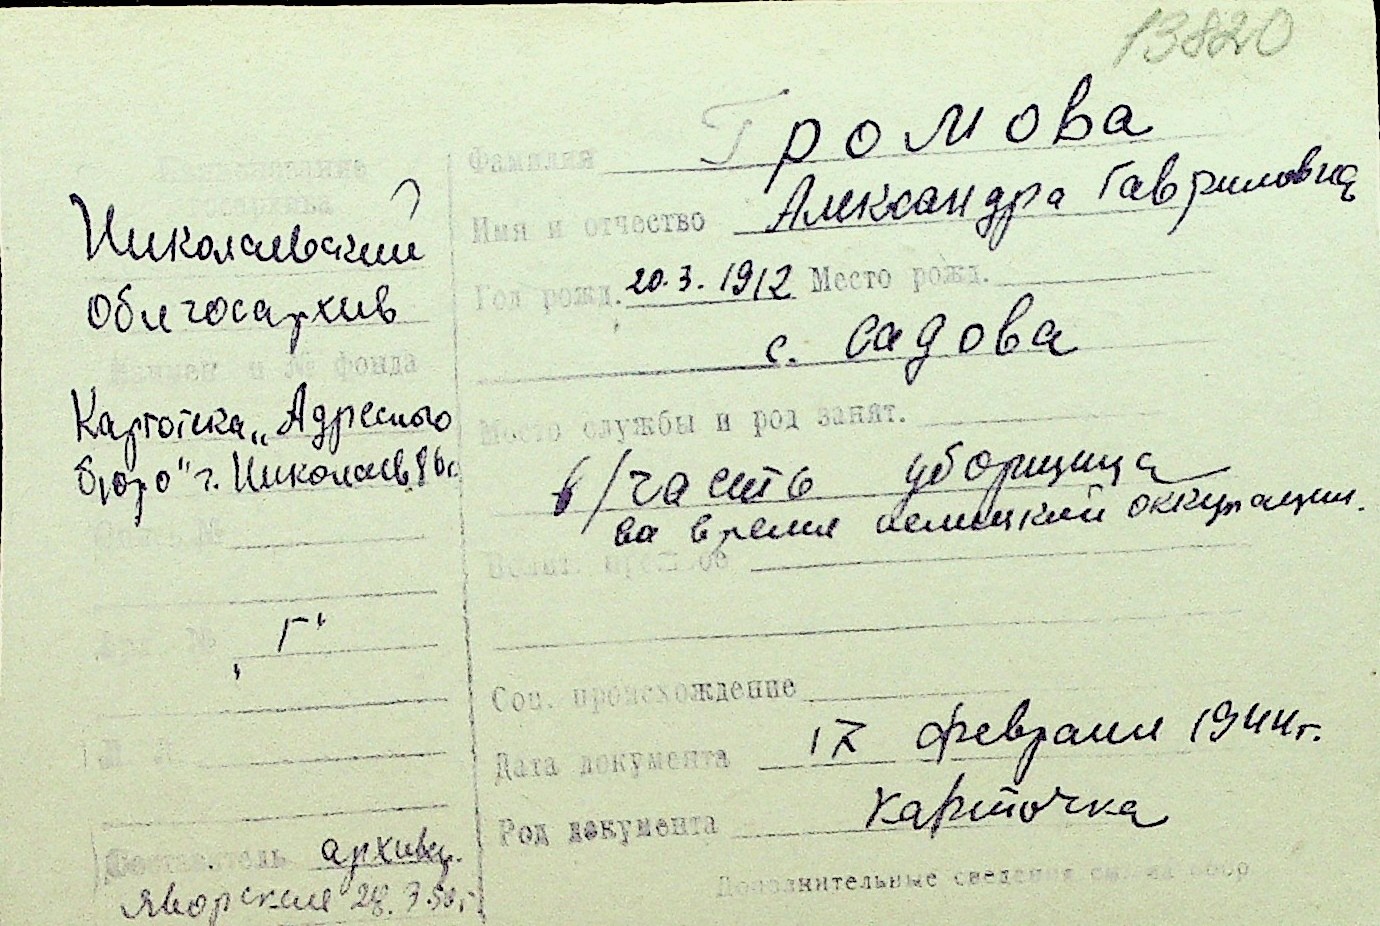 13820
Наименование
госархива
Николаевский
Облгосархив
Наимен. и № фонда
Картотека „Адресного
бюро" г. Николаев
Опись №
Арх. №
„Г"
№ л.
Составитель архивар.
Яворская 28.3.50 г.
Фамилия Громова
Имя и отчество Александра Гавриловна
Год рожд. 20.3.1912 Место рожд.
с. Садова
Место службы и род занят.
в/часть уборщица
во время немецкой оккупации.
Соц. происхождение
Дата документа 17 февраля 1944 г.
Род документа карточка
Дополнительные сведения см. на обор